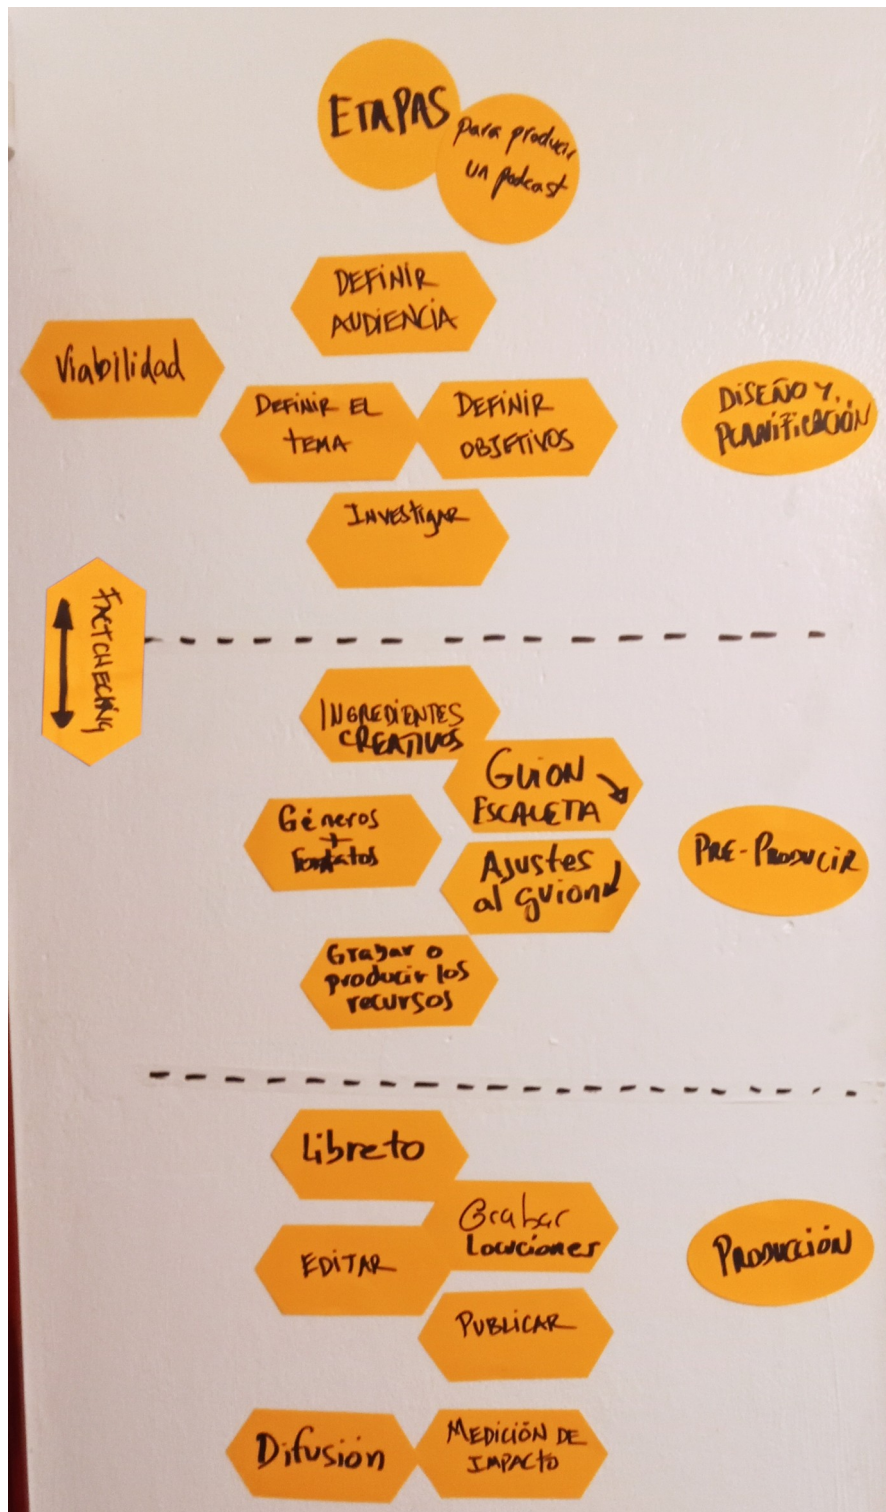 ETAPAS
para producir
un podcast
DEFINIR
AUDIENCIA
Viabilidad
DEFINIR EL
TEMA
DEFINIR
OBJETIVOS
DISEÑO Y
PLANIFICACIÓN
INVESTIGAR
FACTCHECKING
INGREDIENTES
CREATIVOS
GUION
ESCALETA
Géneros
+
Formatos
Ajustes
al guion
PRE-PRODUCIR
Grabar o
producir los
recursos
Libreto
Grabar
Locuciones
EDITAR
PRODUCCIÓN
PUBLICAR
Difusión
MEDICIÓN DE
IMPACTO